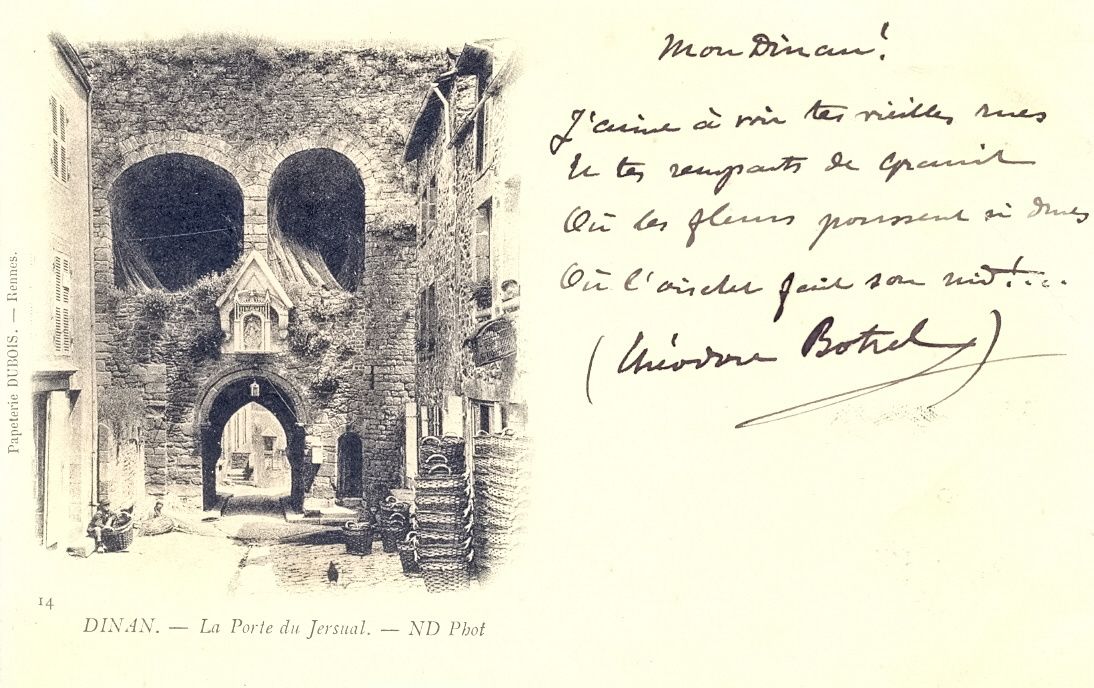 Mon Dinan!
J'aime à voir tes vieilles rues
Et tes remparts de granit
Où les fleurs poussent si drues
Où l'oiselet fait son nid!...
(Théodore Botrel)
Papeterie DUBOIS. — Rennes.
14
DINAN. — La Porte du Jersual. — ND Phot